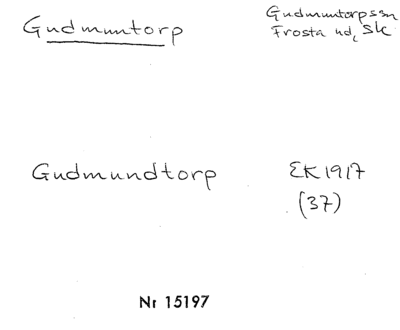 Gudmuntorp
Gudmuntorps sn
Frosta hd, Sk
Gudmundtorp
EK 1917
(37)
Nr 15197